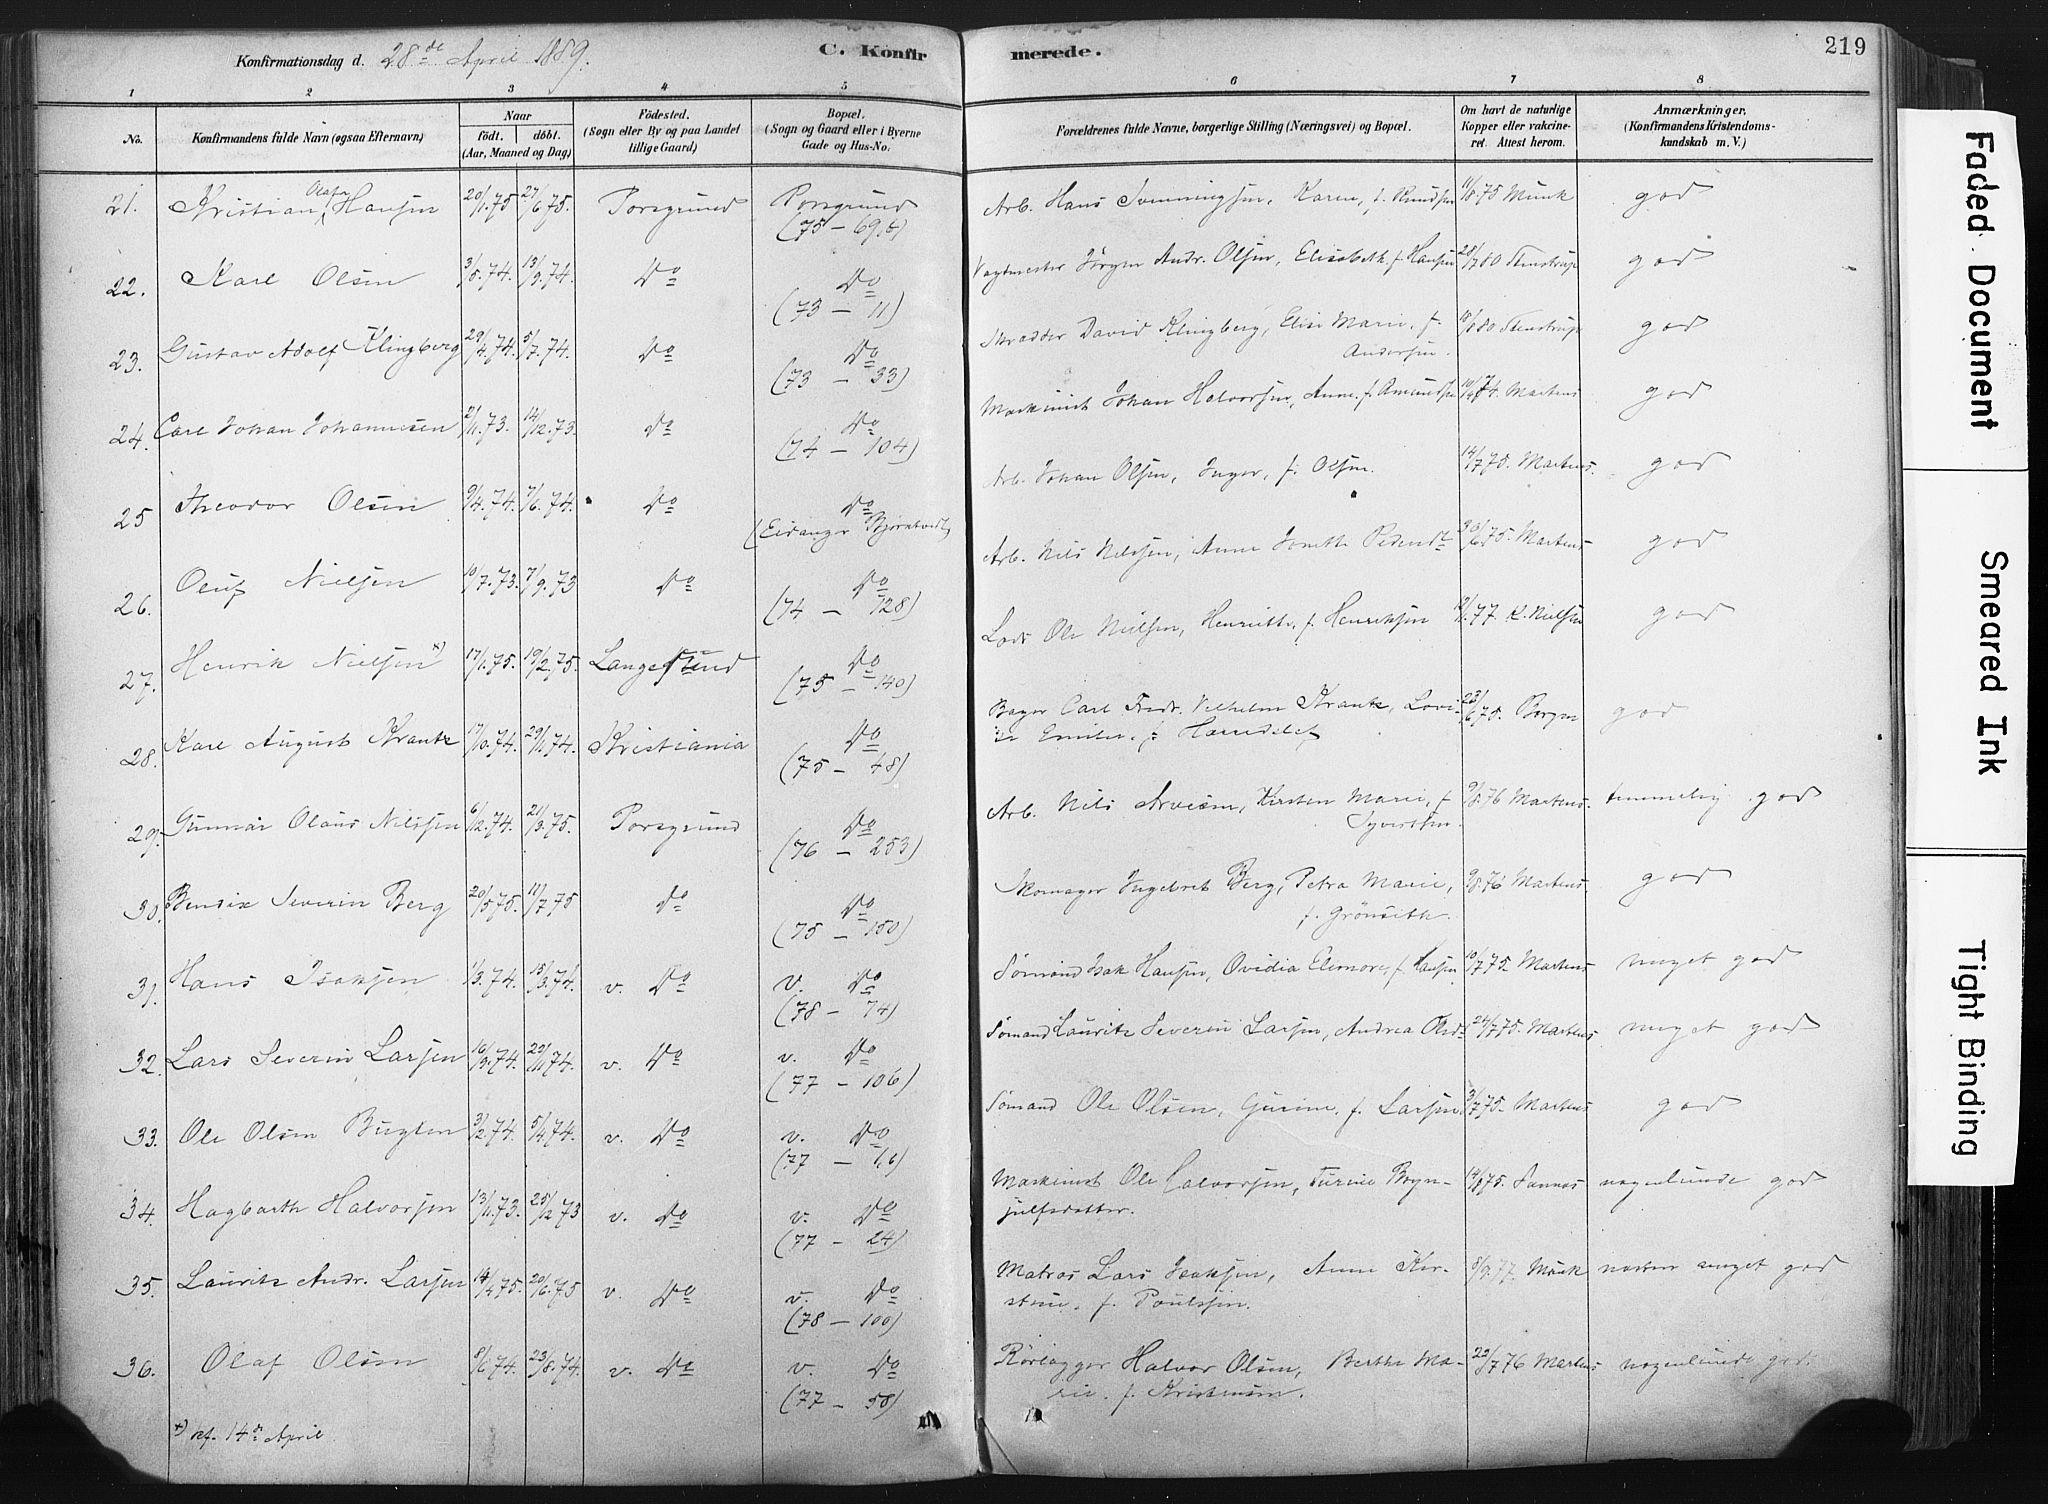 Konfirmationsdag d. 28de April 1889.
C. Konfir
merede.
219
1 2 3 4 5 6 7 8
No.
Konfirmandens fulde Navn (ogsaa Efternavn)
Naar
födt. döbt.
(Aar, Maaned og Dag)
Födested.
(Sogn eller By og paa Landet
tillige Gaard)
Bopæl.
(Sogn og Gaard eller i Byerne
Gade og Hus-No.
Forældrenes fulde Navne, borgerlige Stilling (Næringsvei) og Bopæl.
Om havt de naturlige
Kopper eller vakcine-
ret. Attest herom.
Anmærkninger,
(Konfirmandens Kristendoms-
kundskab m. V.)
21. Kristian Olafn Hansen 20/1.75 27/6.75. Porsgrund Porsgrund Arb. Hans Svenningsen, Karen, f. Knudsen 11/8.75 Munk god
(75 – 69,b)
22. Karl Olsen 3/8.74. 13/9.74. Do Do Vagtmester Jörgen Andr. Olsen, Elisabeth f. Hansen 28/7.80 Stenstrup god
(73 – 11)
23. Gustav Adolf Klingberg 29/4.74. 5/7.74. Do Do Skrædder David Klingberg, Elise Marie, f. 80 Stenstrup god
Andersen.
(73 – 33)
24. Carl Johan Johannesen 2/11.73. 14/12.73. Do Do Maskinist Johan Halvorsen, Anne, f. Amundsen 74. Martens god
(74 – 104)
25 Theodor Olsen 9/4.74. 7/6.74. Do Do Arb. Johan Olsen, Inger, f. Olsen. 14/7.75. Martens. god
(Eidanger Bjørntvedt)
26. Oluf Nielsen 10/7.73. 7/9.73 Do Do Arb. Nils Nilssen, Anne Pedersdt 75. Martens god
(74 – 128)
27. Henrik Nielsen x) 17/1.75. 19/2.75. Langesund Do Lods Ole Nielsen, Henriette, f. Henriksen 77. K. Nielsen god
(75 – 140)
28. Karl August Krantz 17/10.74. 29/11.74. Kristiania Do Bager Carl Fredr. Vilhelm Krantz, Lovi- 23/6.75. god
se Emilie, f.
(75 – 48)
29. Gunnar Olaus Nilssen 6/12.74. 21/3.75. Porsgrund Do Arb. Nils Arvesen, Kirsten Marie, f. 9/8.76 Martens. temmelig god
Syvertsen.
(76 – 253)
30. Bendix Severin Berg 20/5.75. 11/7.75 do Do Skomager Ingebret Berg, Petra Marie, 9/8.76 Martens. god
f. Grönseth.
(75 – 150)
31. Hans Isaksen 1/3.74. 15/3.74. v. Do v. Do Sømand Isak Hansen, Ovidia Elenore, f. Hansen 10/7.75. Martens meget god
(78 – 74)
32. Lars Severin Larsen 16/9.74. 29/11.74. v. Do v. Do Sømand Lauritz Severin Larsen, Andrea Olsdt 24/7.75. Martens. meget god
(77 – 106)
33. Ole Olsen Bugten 3/2.74. 5/4.74. v. Do v. Do Sømand Ole Olsen, Gurine, f. Larsen 3/7.75. Martens god
(77 – 16)
34. Hagbarth Halvorsen 13/11.73. 25/12.73 v. Do v. Do Maskinist Ole Halvorsen, Turine Bryn- 75. Sannes nogenlunde god
julfsdatter.
(77 – 24)
35. Lauritz Andr. Larsen 14/4.75. 20/6.75 v. Do v. Do Matros Lars Isaksen, Anne Kir- 8/9.77. Munk næsten meget god
stine, f. Poulssen.
(78 – 100)
36. Olaf Olsen 8/6.74. 23/8.74. v. Do v. Do Rörlægger Halvor Olsen, Berthe Ma- 22/7.76 Martens nogenlunde god.
rie, f. Kristensen.
(77 – 58)
x) kf. 14de April
Faded Document
Smeared Ink
Tight Binding